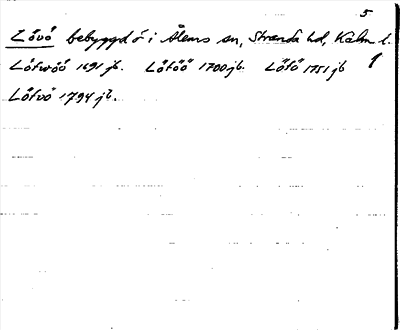 5
Lövö bebyggd ö i Ålems sn, Stranda hd, Kalm l.
Löfwöö 1691 jb. Löföö 1700 jb. Löfö 1751 jb 1
Löfvö 1794 jb.